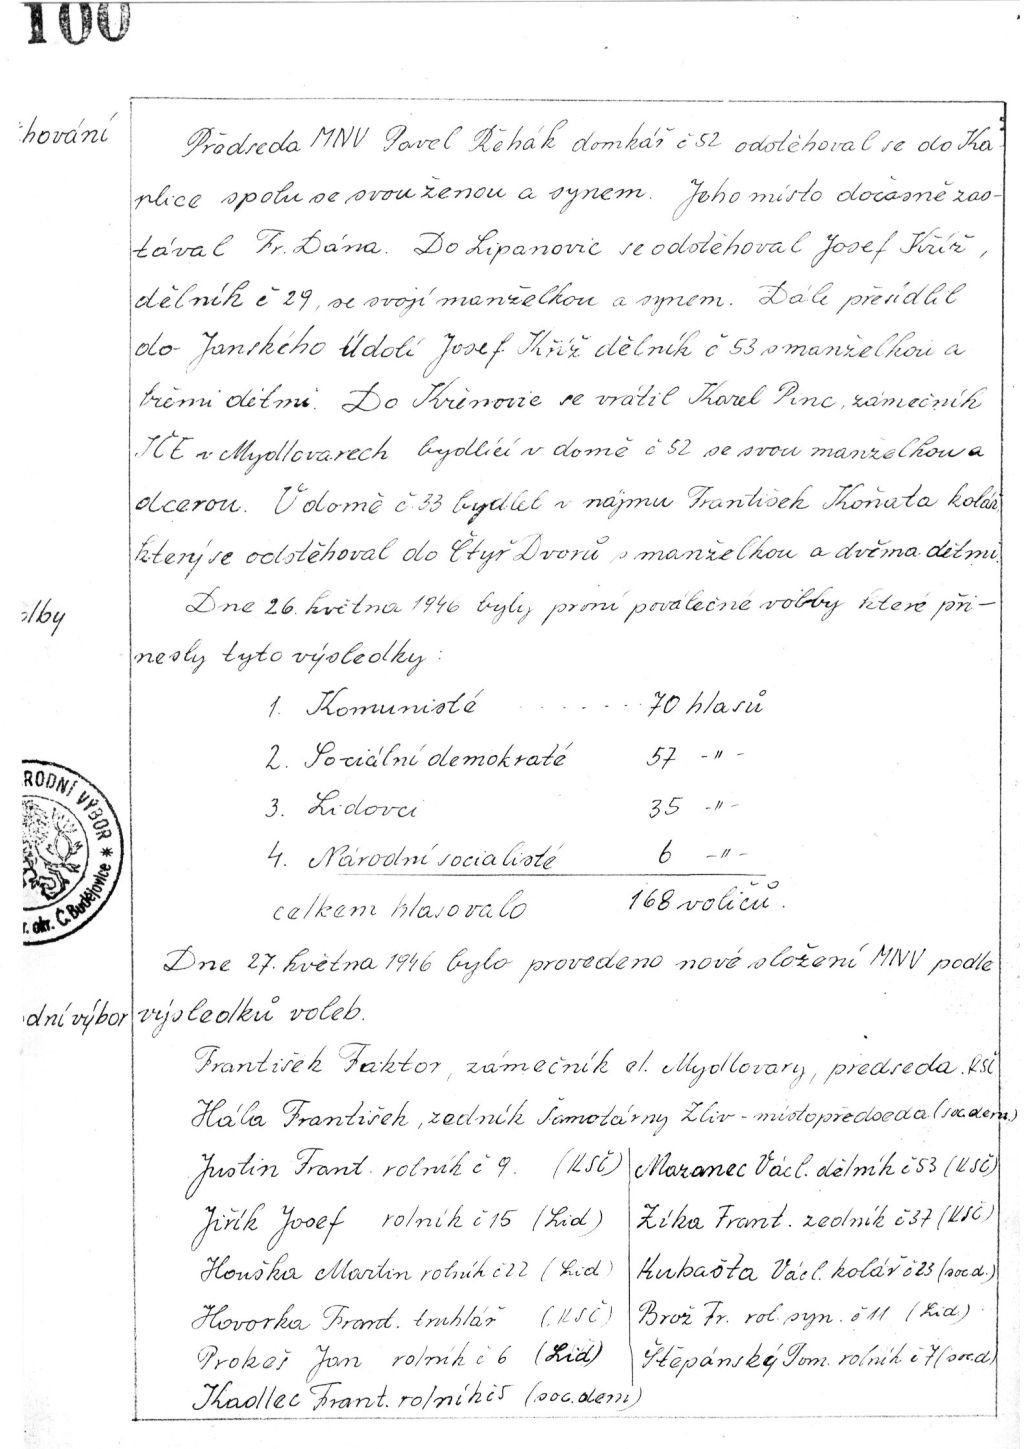 100
Předseda MNV Pavel Řěhák domkář č 52 odstěhoval se do Ka-
plice spolu se svou ženou a synem. Jeho místo dočasně zas-
tával Fr. Dána. Do Lipanovic se odstěhoval Josef Kříž,
dělník č 29, se svojí manželkou a synem. Dále přesídlil
do Janského Údolí Josef Kříž dělník č 53 s manželkou a
třěmi dětmi. Do Křenovic se vrátil Karel Pinc, zámečník
JČE v Mydlovarech bydlící v domě č 52 se svou manželkou a
dcerou. V domě č. 33 bydlel v nájmu František Koňata kolář
který se odstěhoval do Čtyř Dvorů s manželkou a dvěma dětmi.
Dne 26. května 1946 byly první poválečné volby které při-
nesly tyto výsledky:
1. Komunisté . . . . . . 70 hlasů
2. Sociální demokraté 57 -"-
3. Lidovci 35 -"-
4. Národní socialisté 6 -"-
celkem hlasovalo 168 voličů.
RODNÍ VÝBOR *
okr. Č. Budějovice
Dne 27. května 1946 bylo provedeno nové složení MNV podle
dní výbor výsledků voleb.
František Faktor, zámečník el. Mydlovary, předseda. KSČ
Hála František, zedník Šamotárny Zliv - místopředseda (soc.dem)
Justin Frant. rolník č 9. (KSČ) Mazanec Václ. dělník č 53 (KSČ)
Jiřík Josef rolník č 15 (Lid) Zíka Frant. zedník č 37 (KSČ)
Houška Martin rolník č 22 (Lid) Kubašta Václ. kolář č 23 (soc d.)
Hovorka Frant. truhlář (KSČ) Brož Fr. rol. syn. č 11 (Lid)
Prokeš Jan rolník č 6 (Lid) Štěpánský Tom. rolník č 7 (soc.d)
Kadlec Frant. rolník č 5 (soc.dem)